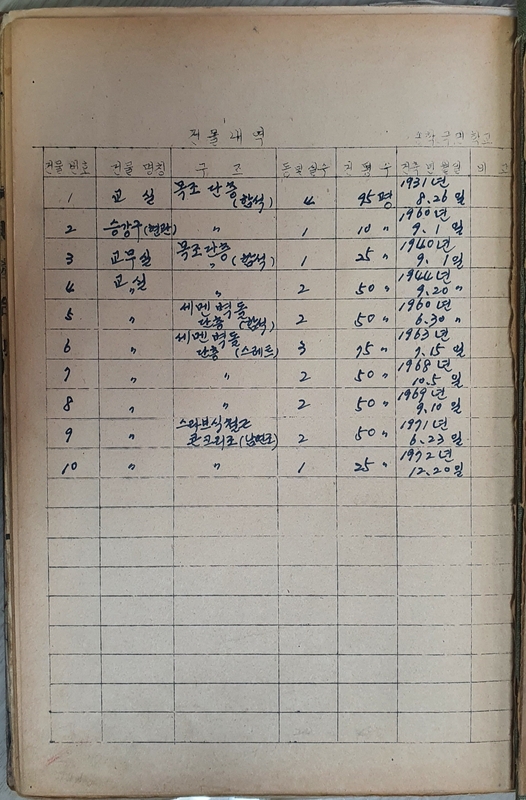 건물내역
국민학교
건물번호 건물 명칭 구 조 동및실수 건평수 건축년월일 비고
1 교실 목조단층(함석) 4 95평 1931년 8.26일
2 승강구(현관) 〃 1 10〃 1960년 9.1일
3 교무실 목조단층〃(함석) 1 25〃 1940년 9.1일
4 교실〃 〃 2 50〃 1944년 9.20〃
5 〃 세멘벽돌 단층(함석) 2 50〃 1960년 6.30〃
6 〃 세멘벽돌 단층(스레트) 3 75 〃 1963년 7.15일
7 〃 〃 2 50〃 1968년 10.5일
8 〃 〃 2 50〃 1969년 9.10일
9 〃 스라브식철근 콘크리조 2 50〃 1971년 6.23일
10 〃 〃 1 25〃 1972년 12.20일